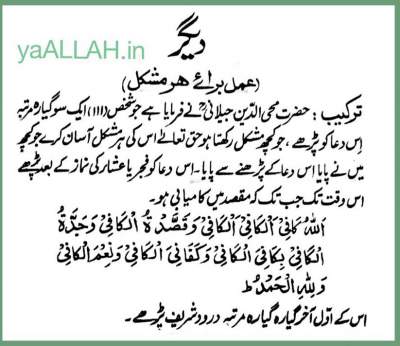 yaALLAH.in
دیگر
(عمل برائے ہر مشکل)
ترکیب: حضرت محی الدین جیلانیؒ نے فرمایا ہے جو شخص (۱۱۱) ایک سو گیارہ مرتبہ
اِس دعا کو پڑھے، جو کچھ مشکل رکھتا ہو حق تعالےٰ اس کی ہر مشکل آسان کرے جو کچھ
میں نے پایا اس دعا کے پڑھنے سے پایا۔ اس دعا کو فجر یا عشاء کی نماز کے بعد پڑھے
اس وقت تک جب تک کہ مقصد میں کامیابی ہو۔
اَللهُ كَافِىْ اَلْكَافِىْ اَلْكَافِىْ وَقَصَّدْةُ الْكَافِىْ وَجَدَّةُ
الْكَافِىْ بِكَافِىْ الْكَافِىْ وَكَفَانِىَ الْكَافِىْ وَنِعْمَ الْكَافِىْ
وَلِلّٰهِ الْحَمْدُ ط
اس کے اوّل آخر گیارہ گیارہ مرتبہ درود شریف پڑھے۔